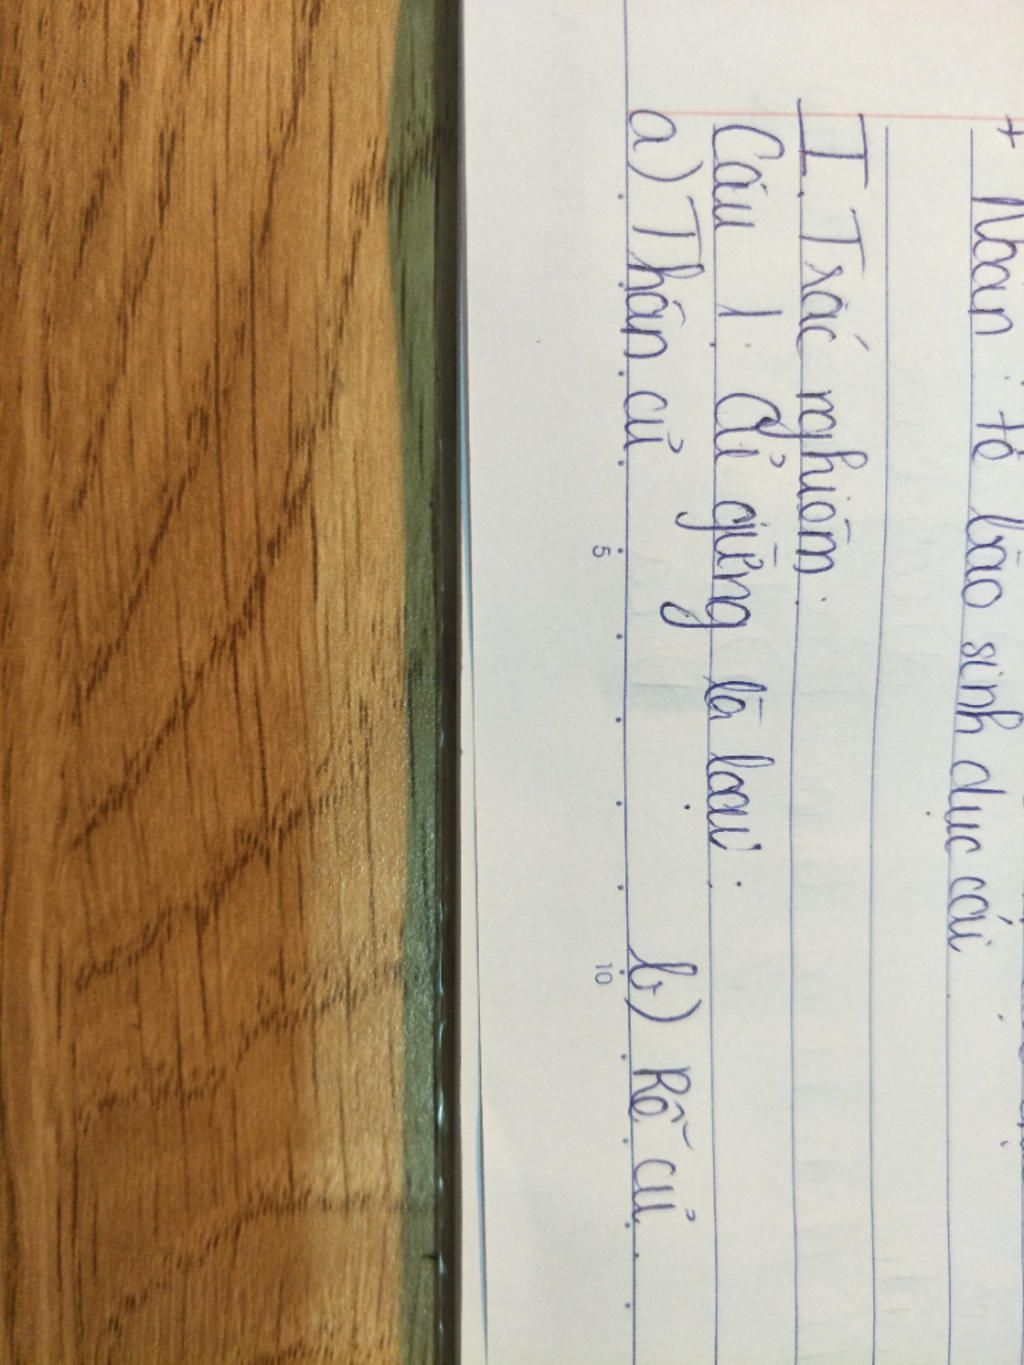 + Nhân: tế bào sinh dục cái
I. Trắc nghiệm:
Câu 1: Củ gừng là loại:
a) Thân củ
b) Rễ củ
5
10